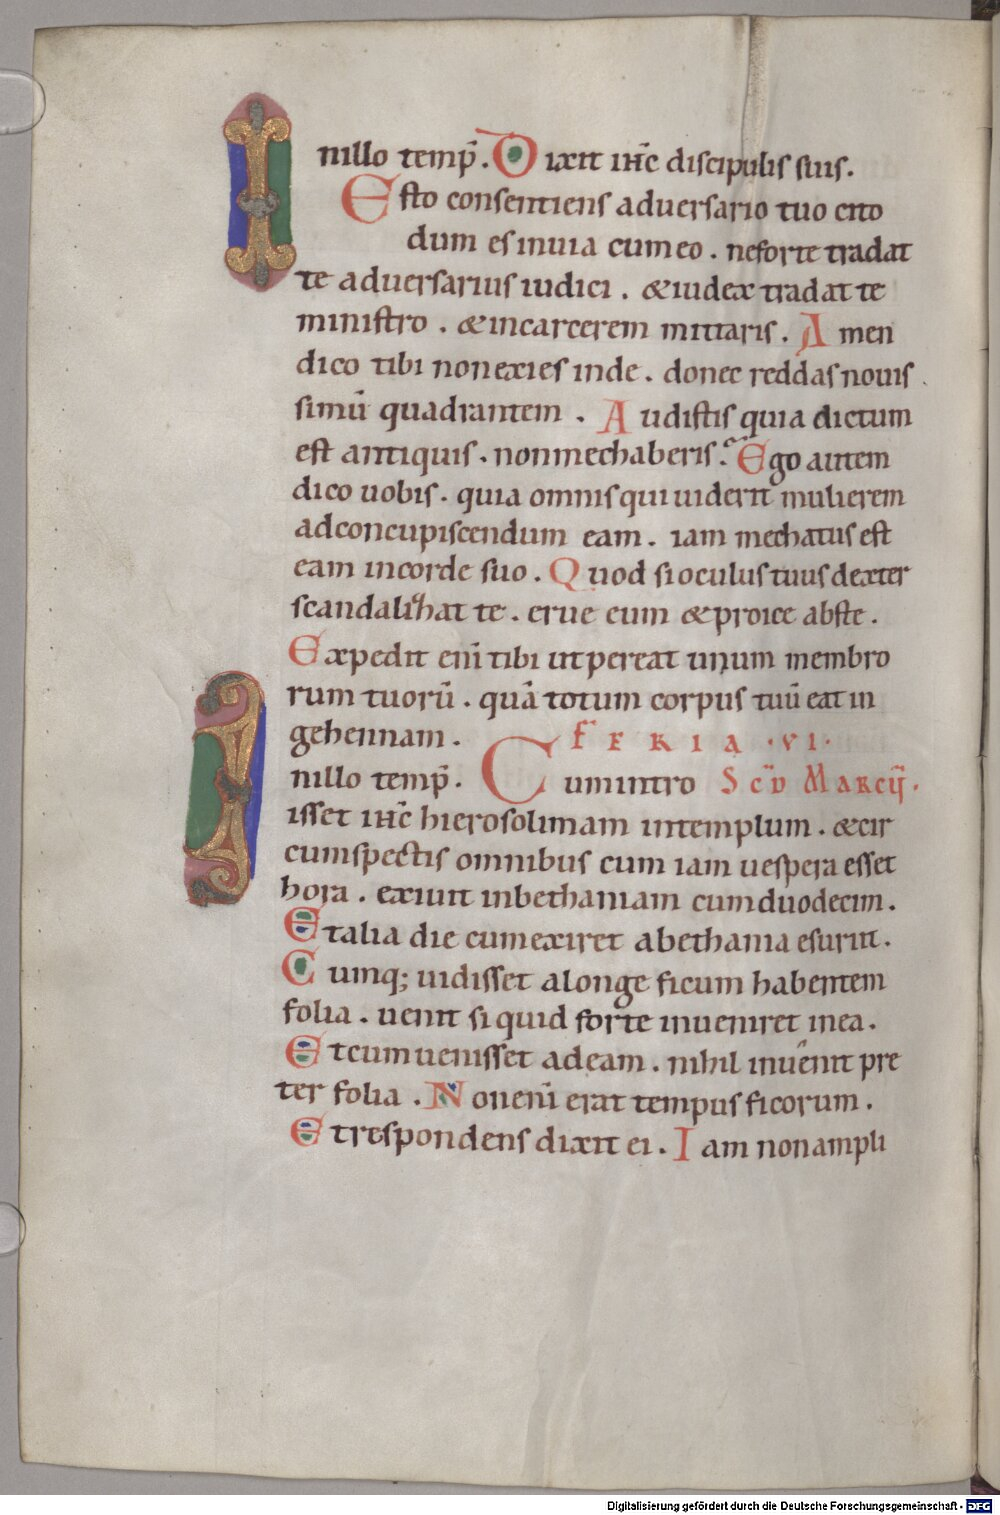 Inillo temp̄. Dixit ihc̄ discipulis suis.
Esto consentiens aduersario tuo cito
dum es inuia cum eo. neforte tradat
te aduersarius iudici. &iudex tradat te
ministro. &incarcerem mittaris. Amen
dico tibi nonexies inde. donec reddas nouis
simū quadrantem. Audistis quia dictum
est antiquis. nonmechaberis. Ego autem
dico uobis. quia omnis qui uiderit mulierem
adconcupiscendum eam. iam mechatus est
eam incorde suo. Quod sioculus tuus dexter
scandalizhat te. erue eum &proice abste.
Expedit eni̅ tibi utpereat unum membro
rum tuorū. quā totum corpus tuū eat in
gehennam. FERIA ·VI·
Inillo temp̄. Cumintro Scd̄ Marcū.
isset ihc̄ hierosolimam intemplum. &cir
cumspectis omnibus cum iam uespera esset
hora. exiuit inbethaniam cumduodecim.
Etalia die cumexiret abethania esuriit.
Cumq; uidisset alonge ficum habentem
folia. uenit siquid forte inueniret inea.
Etcumuenisset adeam. nihil inuenit pre
ter folia. Noneni̅ erat tempus ficorum.
Etrespondens dixit ei. Iam nonampli
Digitalisierung gefördert durch die Deutsche Forschungsgemeinschaft - DFG